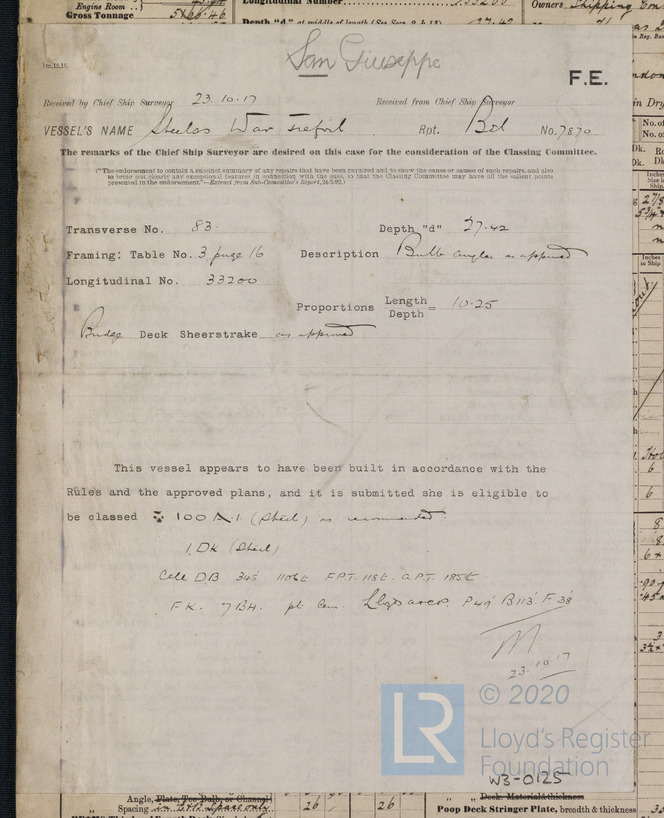 Engine Room
Gross Tonnage 5866.46
Longitudinal Number
Depth "d" at middle of length (See Secs. 2 & 13) 27.42
Owners Shipping
San Giuseppe
F.E.
Received by Chief Ship Surveyor 23.10.17
Received from Chief Ship Surveyor
VESSEL'S NAME War Trefoil Rpt. No. 7870
The remarks of the Chief Ship Surveyor are desired on this case for the consideration of the Classing Committee.
("The endorsement to contain a succinct summary of any repairs that have been required and to show the cause or causes of such repairs, and also
to bring out clearly any exceptional features in connection with the case, so that the Classing Committee may have all the salient points
presented in the endorsement."—Extract from Sub-Committee's Report, 24/5/92.)
Transverse No. 83
Depth "d" 27.42
Framing: Table No. 3 page 16
Description Bulb angles as approved
Longitudinal No. 33200
Proportions Length
Depth = 10.25
Bridge Deck Sheerstrake as approved
This vessel appears to have been built in accordance with the
Rules and the approved plans, and it is submitted she is eligible to
be classed 100 A.1 (Steel) as recommended.
1 Dk (Steel)
Cell D.B 345' 1106t F.P.T. 118t. A.P.T. 185t.
F.K. 7 B.H. pt Cem. Lloyds a&cp. P 49' B 113' F 38'
23.10.17
LR
© 2020
Lloyd's Register
Foundation
W3-0125
Angle, Plate, Tee Bulb, or Channel
Spacing 26 26
Deck. Material & thickness
Poop Deck Stringer Plate, breadth & thickness